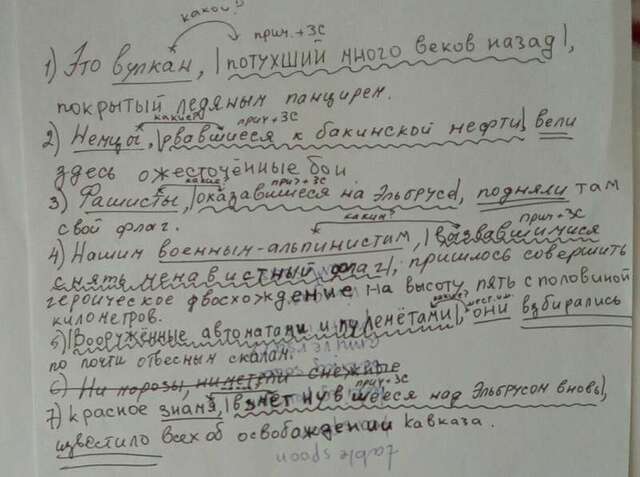 какой?
прич. + ЗС
1) Это вулкан, |потухший много веков назад|,
покрытый ледяным панцирем.
какие? прич + ЗС
2) Немцы, |рвавшиеся к бакинской нефти| вели
здесь ожесточённые бои
какие? прич + ЗС
3) Фашисты, |оказавшиеся на Эльбрусе|, подняли там
свой флаг.
каким? прич + ЗС
4) Нашим военным-альпинистам, |вызвавшимися
снять ненавистный флаг|, пришлось совершить
героическое восхождение на высоту, пять с половиной
километров.
какие? мест. им.
5) |Вооружённые автоматами и пулемётами|, они взбирались
по почти отвесным скалам.
6) Ни морозы, ни метели снежные
прич + ЗС
7) Красное знамя, |взметнувшееся над Эльбрусом вновь|,
известило всех об освобождении Кавказа.
table spoon